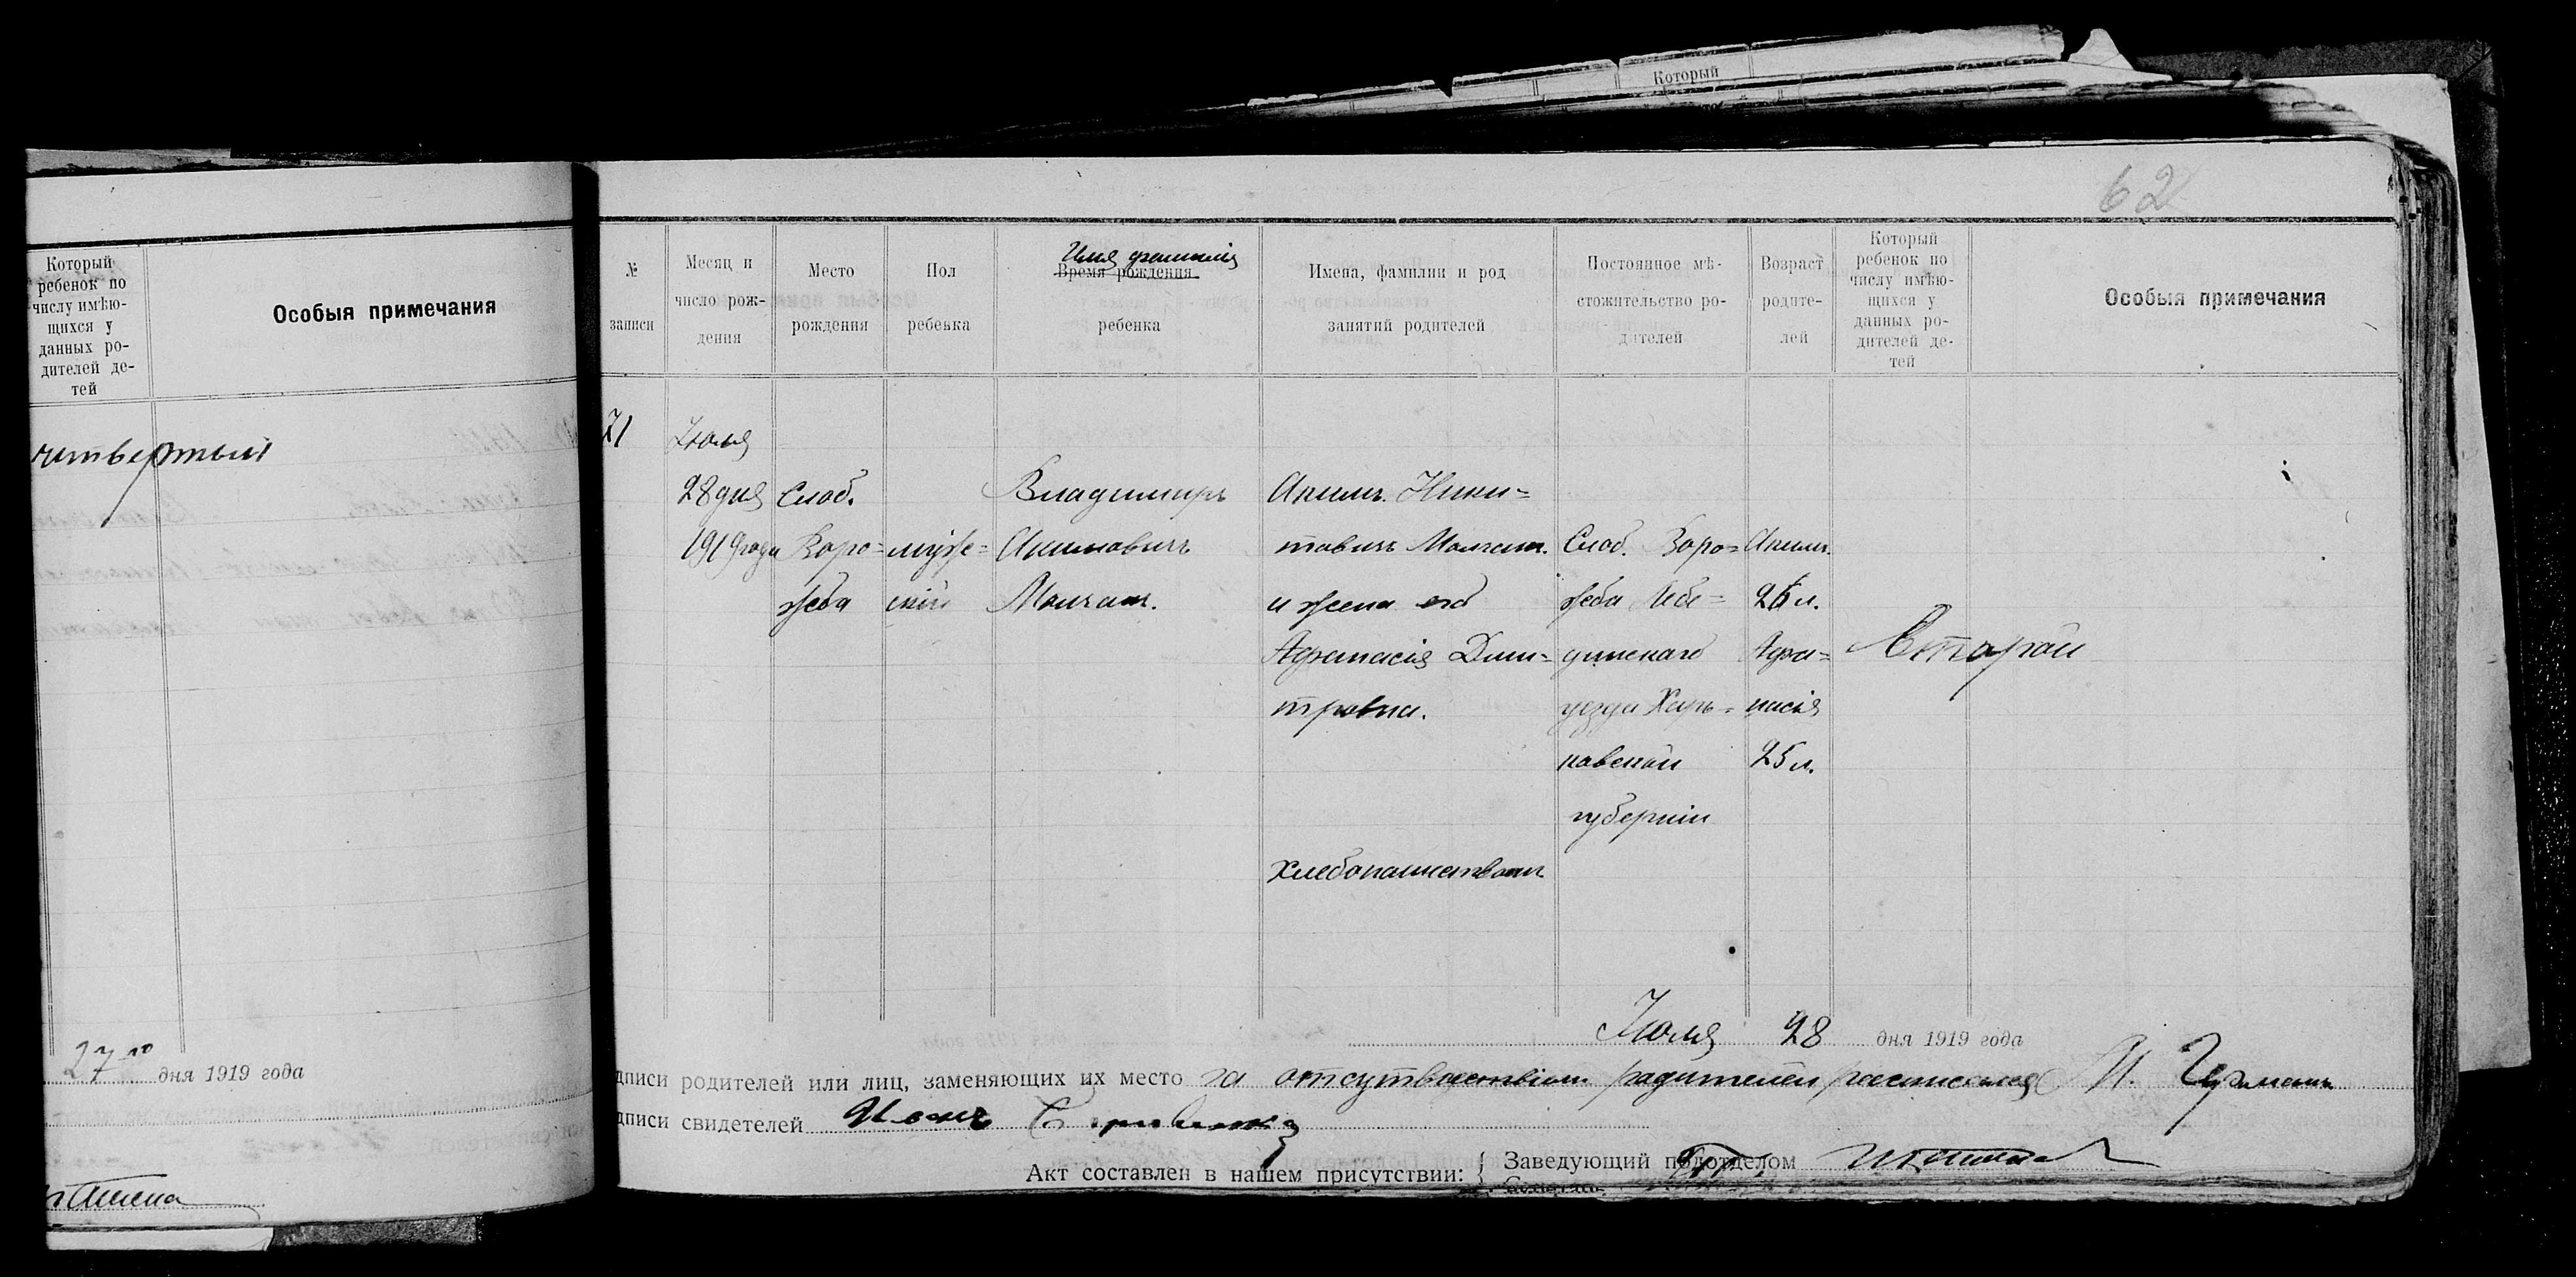 Который
62
Который
ребенок по
числу имѣю-
щихся у
данных ро-
дителей де-
тей
Особыя примечания
четвертый
27го дня 1919 года
№
записи
Месяц и
число рож-
дения
Место
рождения
Пол
ребенка
Имя фамилія
Время рождения
ребенка
Имена, фамилии и род
занятий родителей
Постоянное мѣ-
стожительство ро-
дителей
Возраст
родите-
лей
Который
ребенок по
числу имѣю-
щихся у
данных ро-
дителей де-
тей
Особыя примечания
71
Июля
28 дня
1919 года
Слоб.
Воро=
жба
муж=
скій
Владимиръ
Акимовичъ
Молчан.
Акимъ Ники=
товичъ Молчан.
и жена его
Афанасія Дми=
тровна.
Хлебопашеством
Слоб. Воро=
жба Лебе=
динскаго
уезда Харь=
ковской
губерніи
Акимъ
26 л.
Афа=
насія
25 л.
Второй
Июля 28 дня 1919 года
дписи родителей или лиц, заменяющих их место за отсутвествіем родителей росписался И.
дписи свидетелей Иванъ
Акт составлен в нашем присутствии: { Заведующий подотделом